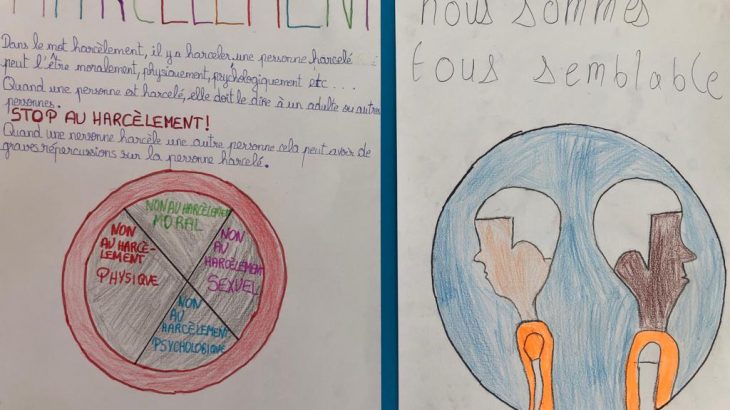 HARCÈLEMENT
Dans le mot harcèlement, il y a harceler, une personne harcelé
peut l'être moralement, physiquement, psychologiquement etc....
Quand une personne est harcelé, elle doit le dire à un adulte ou autres
personnes.
STOP AU HARCÈLEMENT!
Quand une personne harcèle une autre personne cela peut avoir de
graves répercussions sur la personne harcelé.
NON AU HARCÈLEMENT
MORAL
NON
AU HARCÈ-
LEMENT
PHYSIQUE
NON
AU
HARCÈLEMENT
SEXUEL
NON
AU
HARCÈLEMENT
PSYCHOLOGIQUE
nous sommes
tous semblable